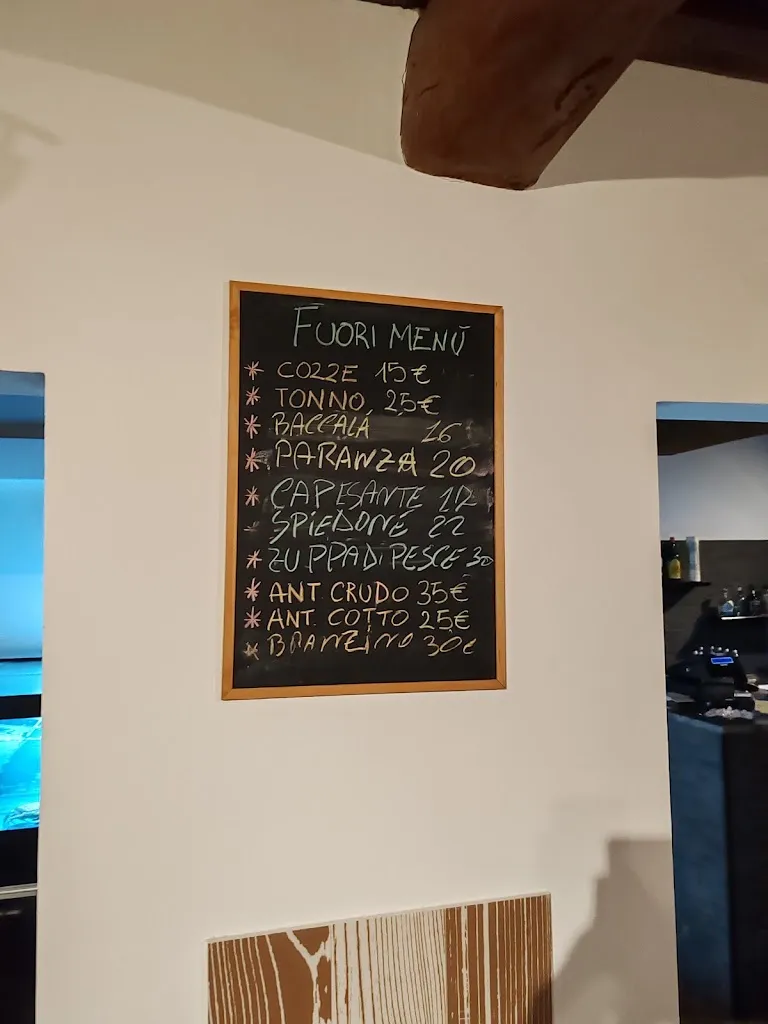 FUORI MENÙ
* COZZE 15€
* TONNO 25€
* BACCALÀ 16
* PARANZA 20
* CAPESANTE
- SPIEDONE 22
* ZUPPA DI PESCE 30
* ANT CRUDO 35€
* ANT. COTTO 25€
* BRANZINO 30€